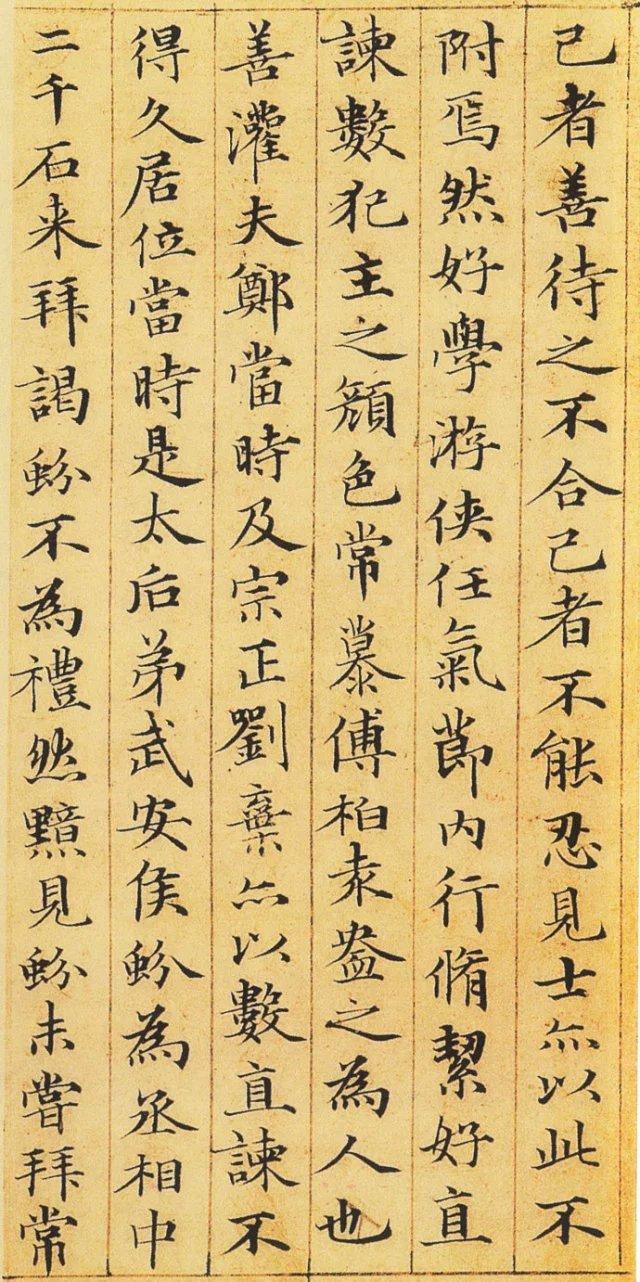 己者善待之不合己者不能忍見士亦以此不
附焉然好學游俠任氣節内行脩絜好直
諫數犯主之顔色常慕傅柏袁盎之為人也
善灌夫鄭當時及宗正劉棄亦以數直諫不
得久居位當時是太后弟武安侯蚡為丞相中
二千石来拜謁蚡不為禮然黯見蚡未嘗拜常